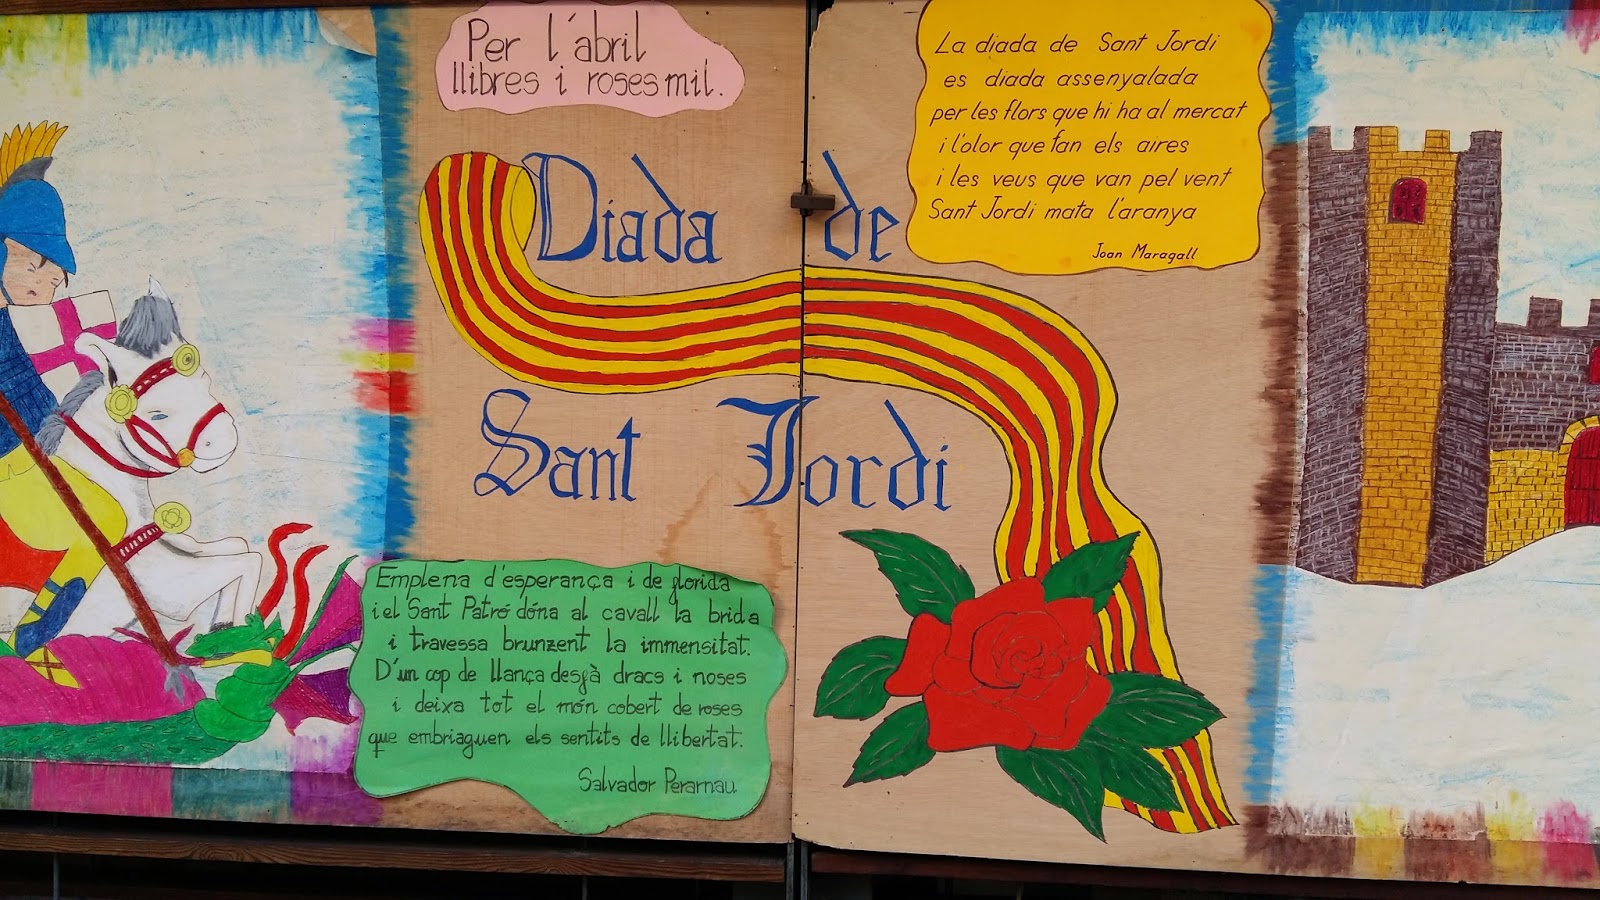 Per l'abril
llibres i roses mil.
La diada de Sant Jordi
es diada assenyalada
per les flors que hi ha al mercat
i l'olor que fan els aires
i les veus que van pel vent
Sant Jordi mata l'aranya
Joan Maragall
Diada de
Sant Jordi
Emplena d'esperança i de florida
i el Sant Patró dóna al cavall la brida
i travessa brunzent la immensitat.
D'un cop de llança desfà dracs i noses
i deixa tot el món cobert de roses
que embriaguen els sentits de llibertat.
Salvador Perarnau